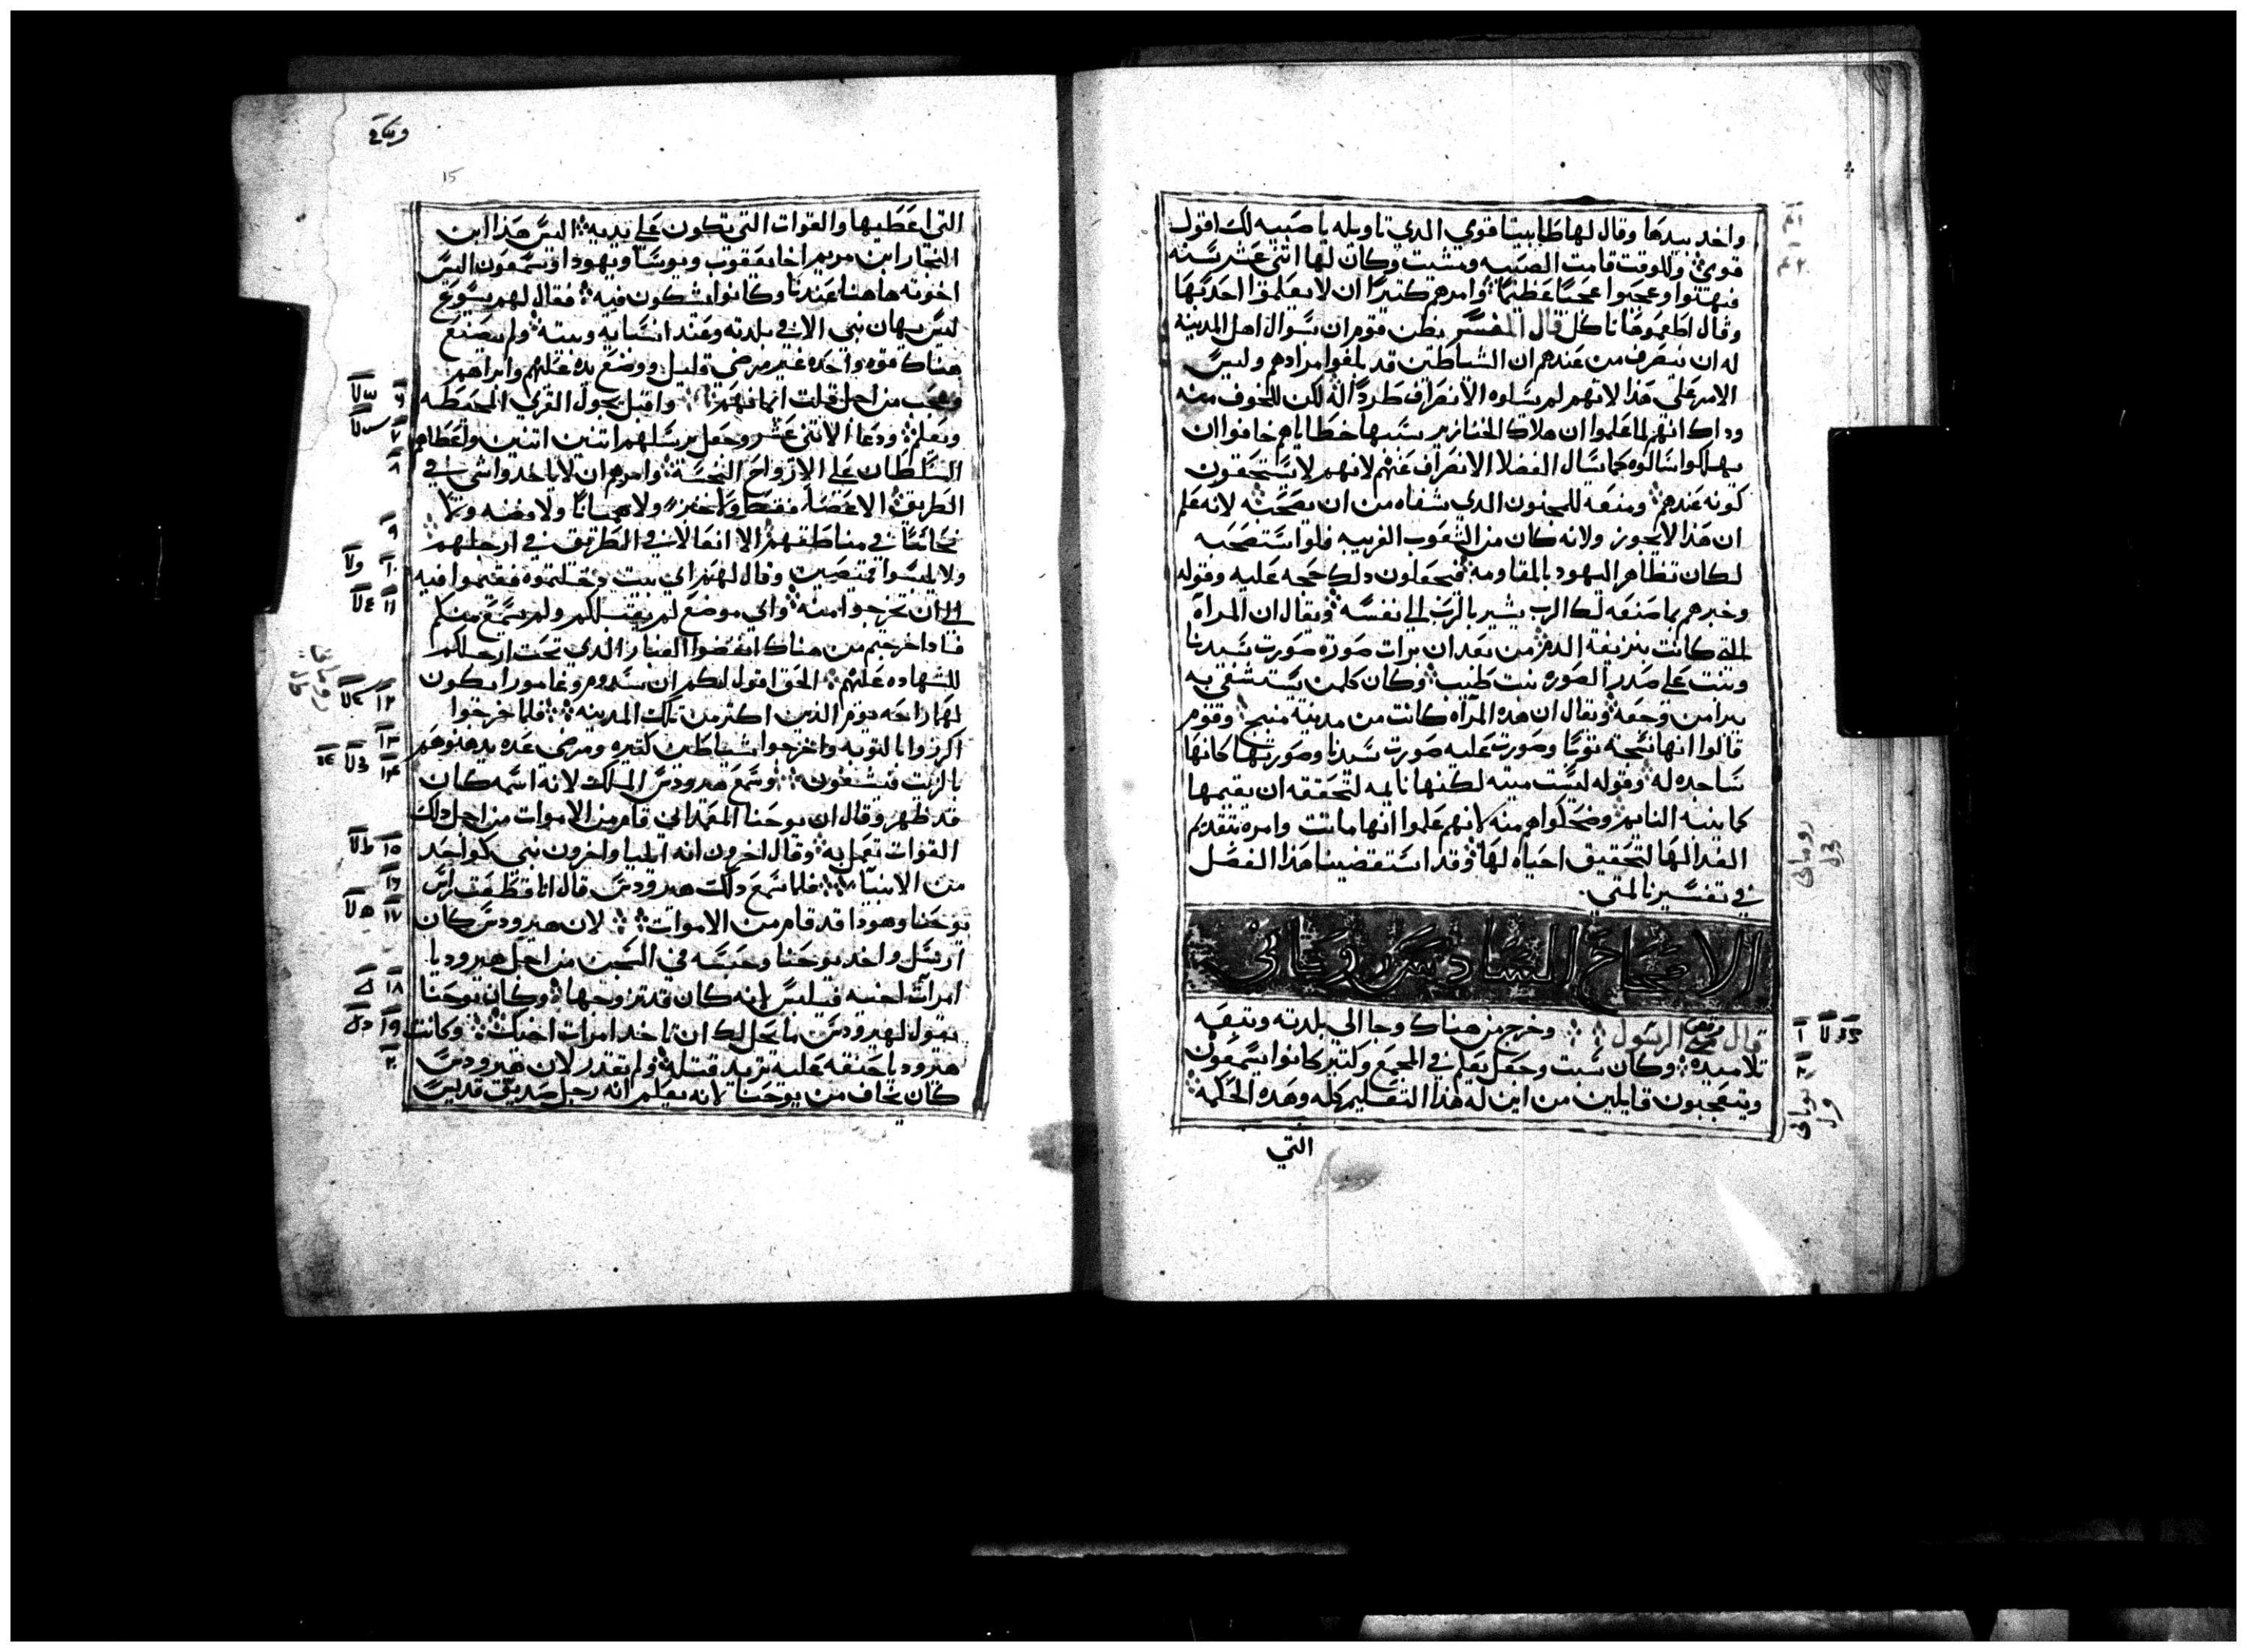 واخد بيدها وقال لها طابيتا قومي الدي تاويله يا صبيه لك اقول
قومي وللوقت قامت الصبيه ومشيت وكان لها اثني عشر سنه
فبهتوا وعجبوا عجبًا عظيمًا وامرهم كتيرًا ان لا يعلموا احد بهدا
وقال اطعموها تاكل قال المفسر يظن قوم ان سوال اهل المدينه
له ان ينصرف من عندهم ان الشياطين قد بلغوا مرادهم وليس
الامر علي هدا لانهم لم يسلوه الانصراف طردًا له لكن للخوف منه
وداك انهم لما علموا ان هلاك الخنازير سببها خطاياهم خافوا ان
يهلكوا سالوه كما سال الفضلا الانصراف عنهم لانهم لا يستحقون
كونه عندهم ومنعه للمجنون الدي شفاه من ان يصحبه لانه علم
ان هدا لا يجوز ولانه كان من الشعوب الغريبه فلو استصحبه
لكان تظاهر اليهود بالمقاومه فيجعلون دلك حجه عليه وقوله
وخبرهم بما صنعه لك الرب يشير بالرب الي نفسه ويقال ان المراه
التي كانت بنزيفة الدم من بعد ان برات صورة صورت سيدنا
وبنت علي صدر الصوره بيت طبيب وكان كلمن يستشفي به
يبرا من وجعه ويقال ان هده المراه كانت من مدينة منبج وقوم
قالوا انها نسجة توبًا وصورت عليه صورت سيدنا وصورتها كانها
ساجده له وقوله ليست ميته لكنها نايمه لتحققه ان يقيمها
كما ينبه النايم وضحكوا هم منه لانهم علموا انها ماتت وامره بتقديم
الغدا لها لتحقيق احياه لها وقد استقضينا هدا الفصل
في تفسيرنا لمتي
الاصحاح السادس روماني
قال مرقص الرسول وخرج من هناك وجا الي بلدته وتبعه
تلاميده وكان سبت وجعل يعلم في المجمع وكتير كانوا يسمعون
ويتعجبون قايلين من اين له هدا التعليم كله وهده الحكمه
التي
15
التي اعطيها والقوات التي تكون علي يديه اليس هدا ابن
النجار ابن مريم اخا يعقوب ويوسا ويهودا وسمعون اليس
اخوته هاهنا عندنا وكانوا يشكون فيه فقال لهم يسوع
ليس يهان نبي الا في بلدته وعند انسابه وبيته ولم يصنع
هناك قوه واحده غير مرضي قليل ووضع يده عليهم وابراهم
وتعجب من اجل قلت ايمانهم واقبل يجول القري المحيطه
ويعلم ودعا الاتني عشر وجعل يرسلهم اتنين اتنين واعطاهم
السلطان علي الارواح النجسة وامرهم ان لا ياخدوا شي في
الطريق الا عصًا فقط ولا خبز ولا هميانًا ولا فضه ولا
نحاسًا في مناطقهم الا انعالا في الطريق في ارجلهم
ولا يلبسوا قميصين وقال لهم اي بيت دخلتموه فقيموا فيه
الي ان تخرجوا منه واي موضع لم يقبلكم ولم يسمع منكم
فادا خرجتم من هناك انفضوا الغبار الدي تحت ارجلكم
للشهاده عليهم الحق اقول لكم ان سدوم وغامورا يكون
لهما راحه يوم الدين اكتر من تلك المدينه فلما خرجوا
اكرزوا بالتوبه واخرجوا شياطين كتيره ومرضي عده يدهنوهم
بالزيت فيشفون وسمع هيرودس الملك لانه اسمه كان
قد ظهر وقال ان يوحنا المعمداني قام من الاموات من اجل دلك
القوات تعمل به وقال اخرون انه ايليا واخرون نبي كواحد
من الانبيا فلما سمع دلك هيرودس قال انا قطعت راس
يوحنا وهودا قد قام من الاموات لان هيرودس كان
ارسل واخد يوحنا وحبسه في السجن من اجل هيروديا
امرات اخيه فيلبس لانه كان قد تزوجها وكان يوحنا
يقول لهيرودس ما يحل لك ان تاخد امرات اخيك وكانت
هيروديا حنقه عليه تريد قتله ولم تقدر لان هيرودس
كان يخاف من يوحنا لانه يعلم انه رجل صديق قديس